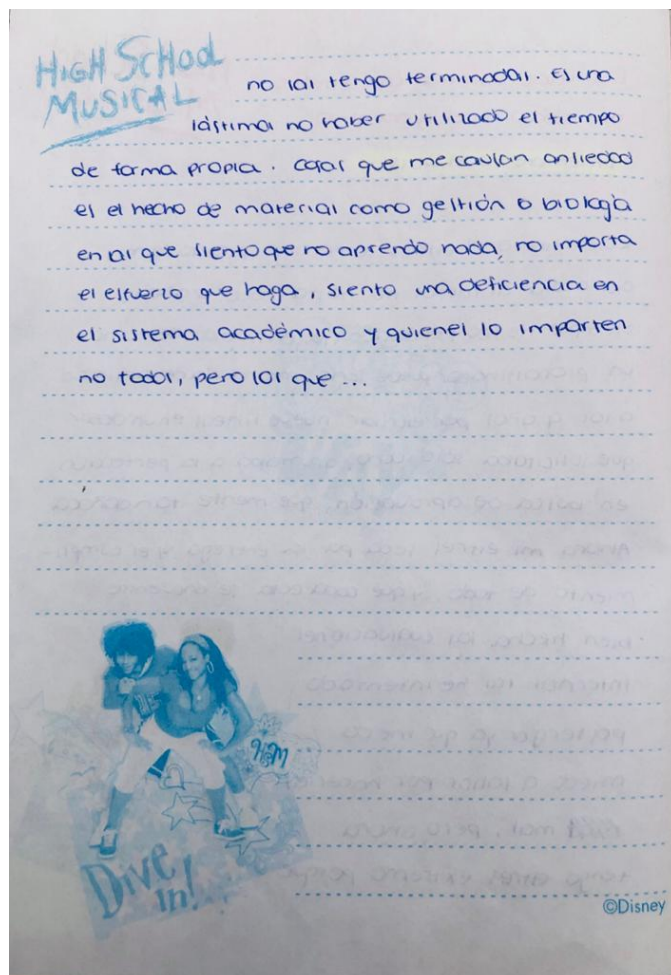 HIGH SCHOOL
MUSICAL
no las tengo terminadas. Es una
lástima no haber utilizado el tiempo
de forma propia. Cosas que me causan ansiedad
es el hecho de materias como gestión o biología
en as que siento que no aprendo nada, no importa
el esfuerzo que haga, siento una deficiencia en
el sistema académico y quienes lo imparten
no todos, pero los que ...
HSM
Dive
In!
©Disney